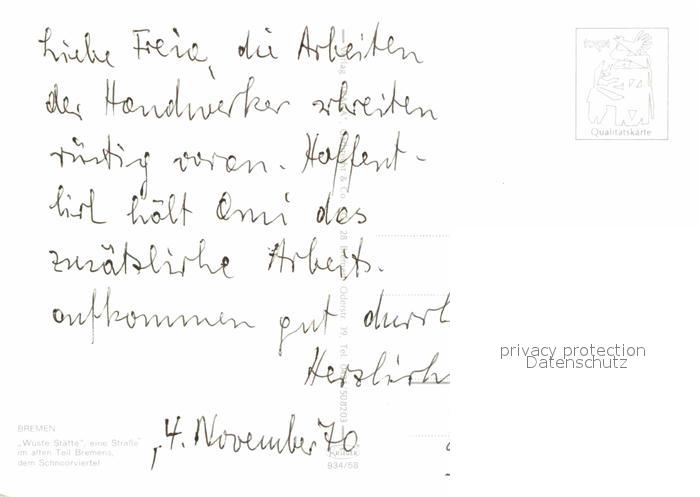 Liebe Freia, die Arbeiten
der Handwerker schreiten
rüstig voran. Hoffent-
lich hält Omi das
zusätzliche Arbeits-
aufkommen gut durch
Herzlich
4. November 70
BREMEN
„Wüste Stätte", eine Straße
im alten Teil Bremens,
dem Schnoorviertel
& Co.
28
Oderstr. 39, Tel.
934/58
Qualitätskarte
privacy protection
Datenschutz